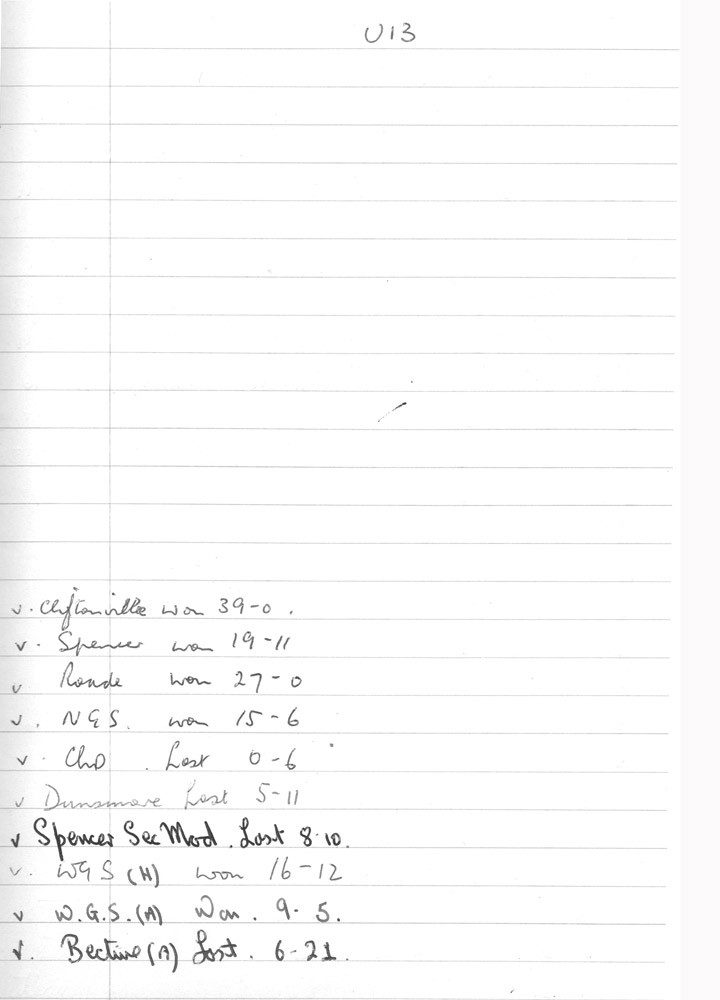 U13
v. Cliftonville won 39-0.
v. Spencer won 19-11
v Roade won 27-0
v. N G S. won 15-6
v. Lost 0-6
v Dunsmore Lost 5-11
v Spencer Sec Mod. Lost 8-10.
v. WGS (H) won 16-12
v W.G.S.(A) Won. 9-5.
v. Bective (A) Lost. 6-21.